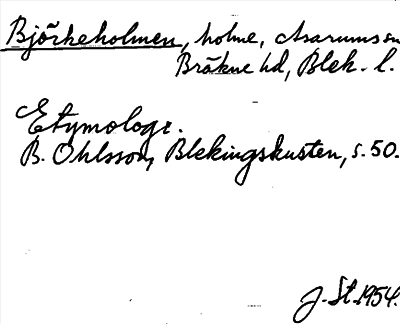 Björkeholmen, holme, Asarums sn
Bräkne hd, Blek. l.
Etymologi.
B. Ohlsson, Blekingskusten, s. 50.
J. St. 1954.